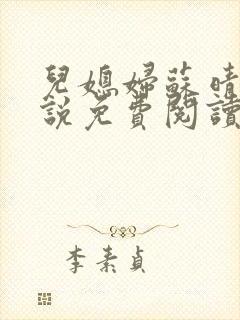 兒媳婦蘇晴
說免費閱讀
李素貞